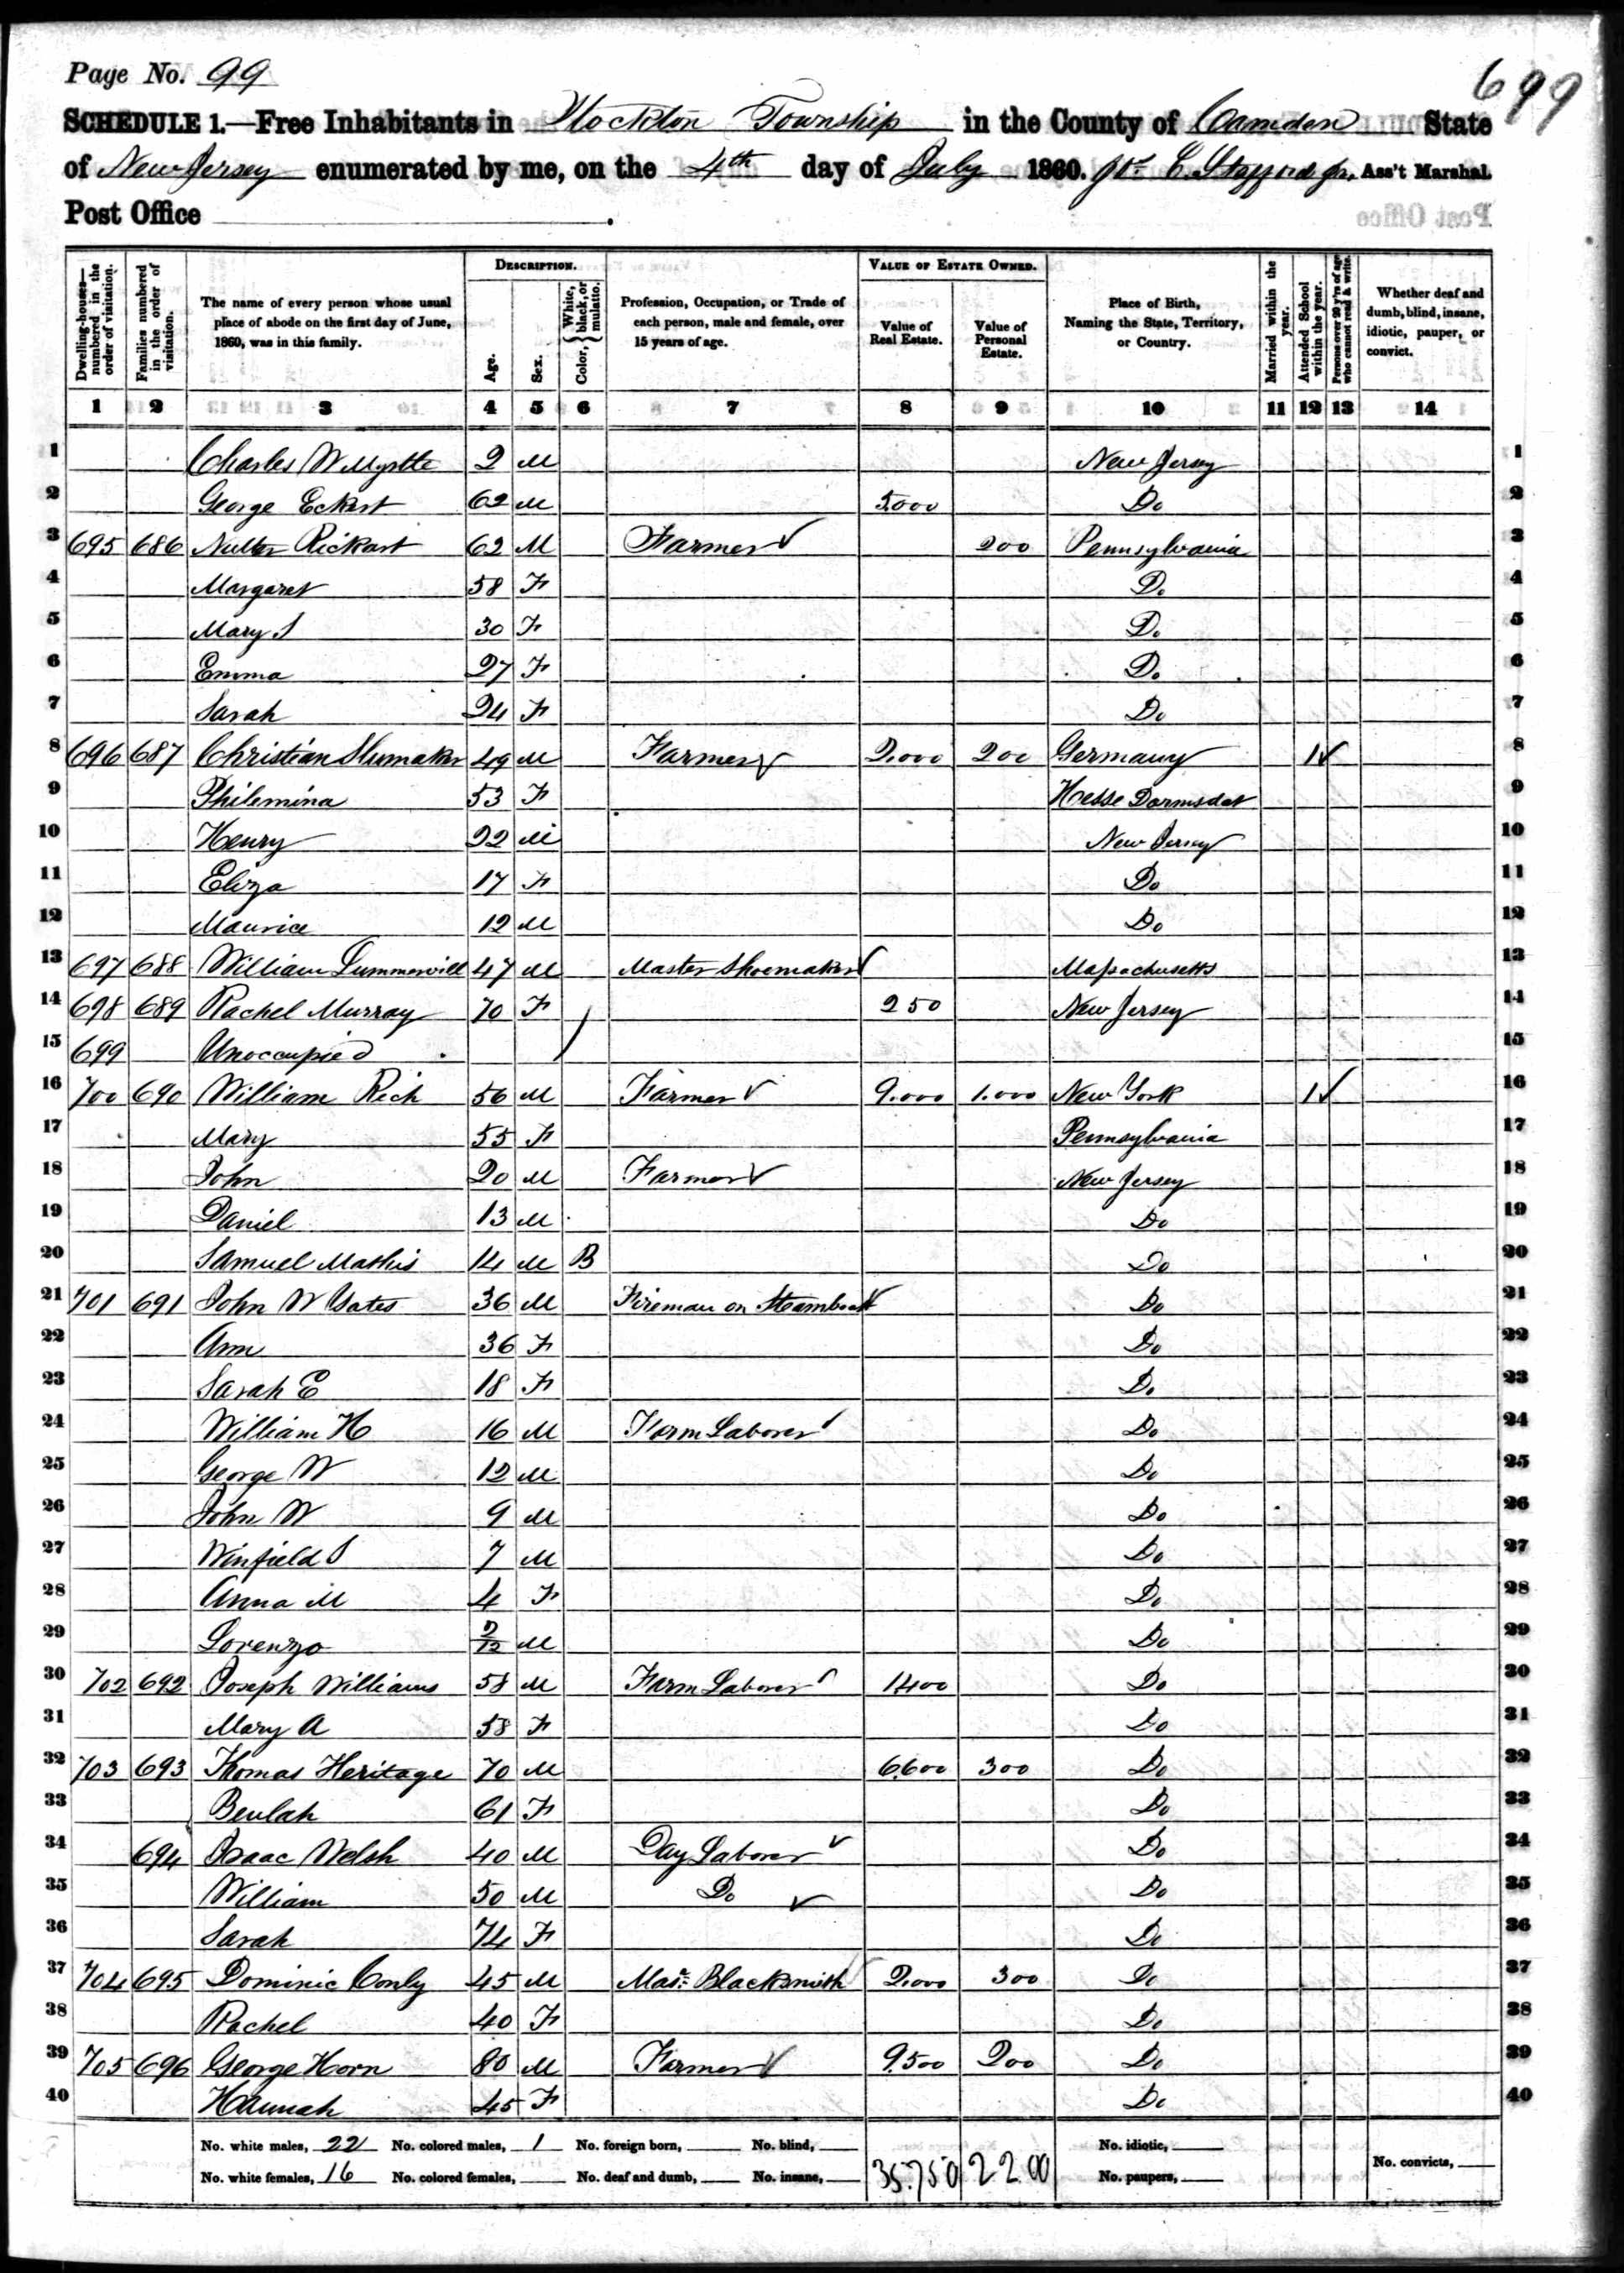 Page No. 99
699
SCHEDULE 1.—Free Inhabitants in Stockton Township in the County of Camden State
of New Jersey enumerated by me, on the 4th day of July 1860. Ass't Marshal.
Post Office
Dwelling-houses—numbered in the order of visitation. Families numbered in the order of visitation. The name of every person whose usual place of abode on the first day of June, 1860, was in this family. Description. Age. Sex. Color, White, black, or mulatto. Profession, Occupation, or Trade of each person, male and female, over 15 years of age. Value of Estate Owned. Value of Real Estate. Value of Personal Estate. Place of Birth, Naming the State, Territory, or Country. Married within the year. Attended School within the year. Persons over 20 y'rs of age who cannot read & write. Whether deaf and dumb, blind, insane, idiotic, pauper, or convict.
1 2 3 4 5 6 7 8 9 10 11 12 13 14
1 Charles W 2 M New Jersey 1
2 George Eckert 62 M 5.000 Do 2
3 695 686 Rickart 62 M Farmer 200 Pennsylvania 3
4 Margaret 58 F Do 4
5 Mary S 30 F Do 5
6 Emma 27 F Do 6
7 Sarah 24 F Do 7
8 696 687 Christian Shumaker 49 M Farmer 2.000 200 Germany 1 8
9 Philemina 53 F Hesse Darmsdat 9
10 Henry 22 M New Jersey 10
11 Eliza 17 F Do 11
12 Maurice 12 M Do 12
13 697 688 William Summerwill 47 M Master Shoemaker Massachusetts 13
14 698 689 Rachel Murray 70 F 250 New Jersey 14
15 699 Unoccupied 15
16 700 690 William Rich 56 M Farmer 9.000 1.000 New York 1 16
17 Mary 55 F Pennsylvania 17
18 John 20 M Farmer New Jersey 18
19 Daniel 13 M Do 19
20 Samuel Mathis 14 M B Do 20
21 701 691 John W Yates 36 M Fireman on Steamboat Do 21
22 Ann 36 F Do 22
23 Sarah E 18 F Do 23
24 William H 16 M Farm Laborer Do 24
25 George W 12 M Do 25
26 John W 9 M Do 26
27 Winfield S 7 M Do 27
28 Anna M 4 F Do 28
29 Lorenzo 2/12 M Do 29
30 702 692 Joseph Williams 58 M Farm Laborer 1400 Do 30
31 Mary A 58 F Do 31
32 703 693 Thomas Heritage 70 M 6600 300 Do 32
33 Beulah 61 F Do 33
34 694 Isaac Welsh 40 M Day Laborer Do 34
35 William 50 M Do Do 35
36 Sarah 74 F Do 36
37 704 695 Dominic Conly 45 M Mas: Blacksmith 2.000 300 Do 37
38 Rachel 40 F Do 38
39 705 696 George Horn 80 M Farmer 9.500 200 Do 39
40 Hannah 45 F Do 40
No. white males, 22 No. colored males, 1 No. foreign born, No. blind, No. idiotic,
No. white females, 16 No. colored females, No. deaf and dumb, No. insane, 35.750 22 00 No. paupers, No. convicts,